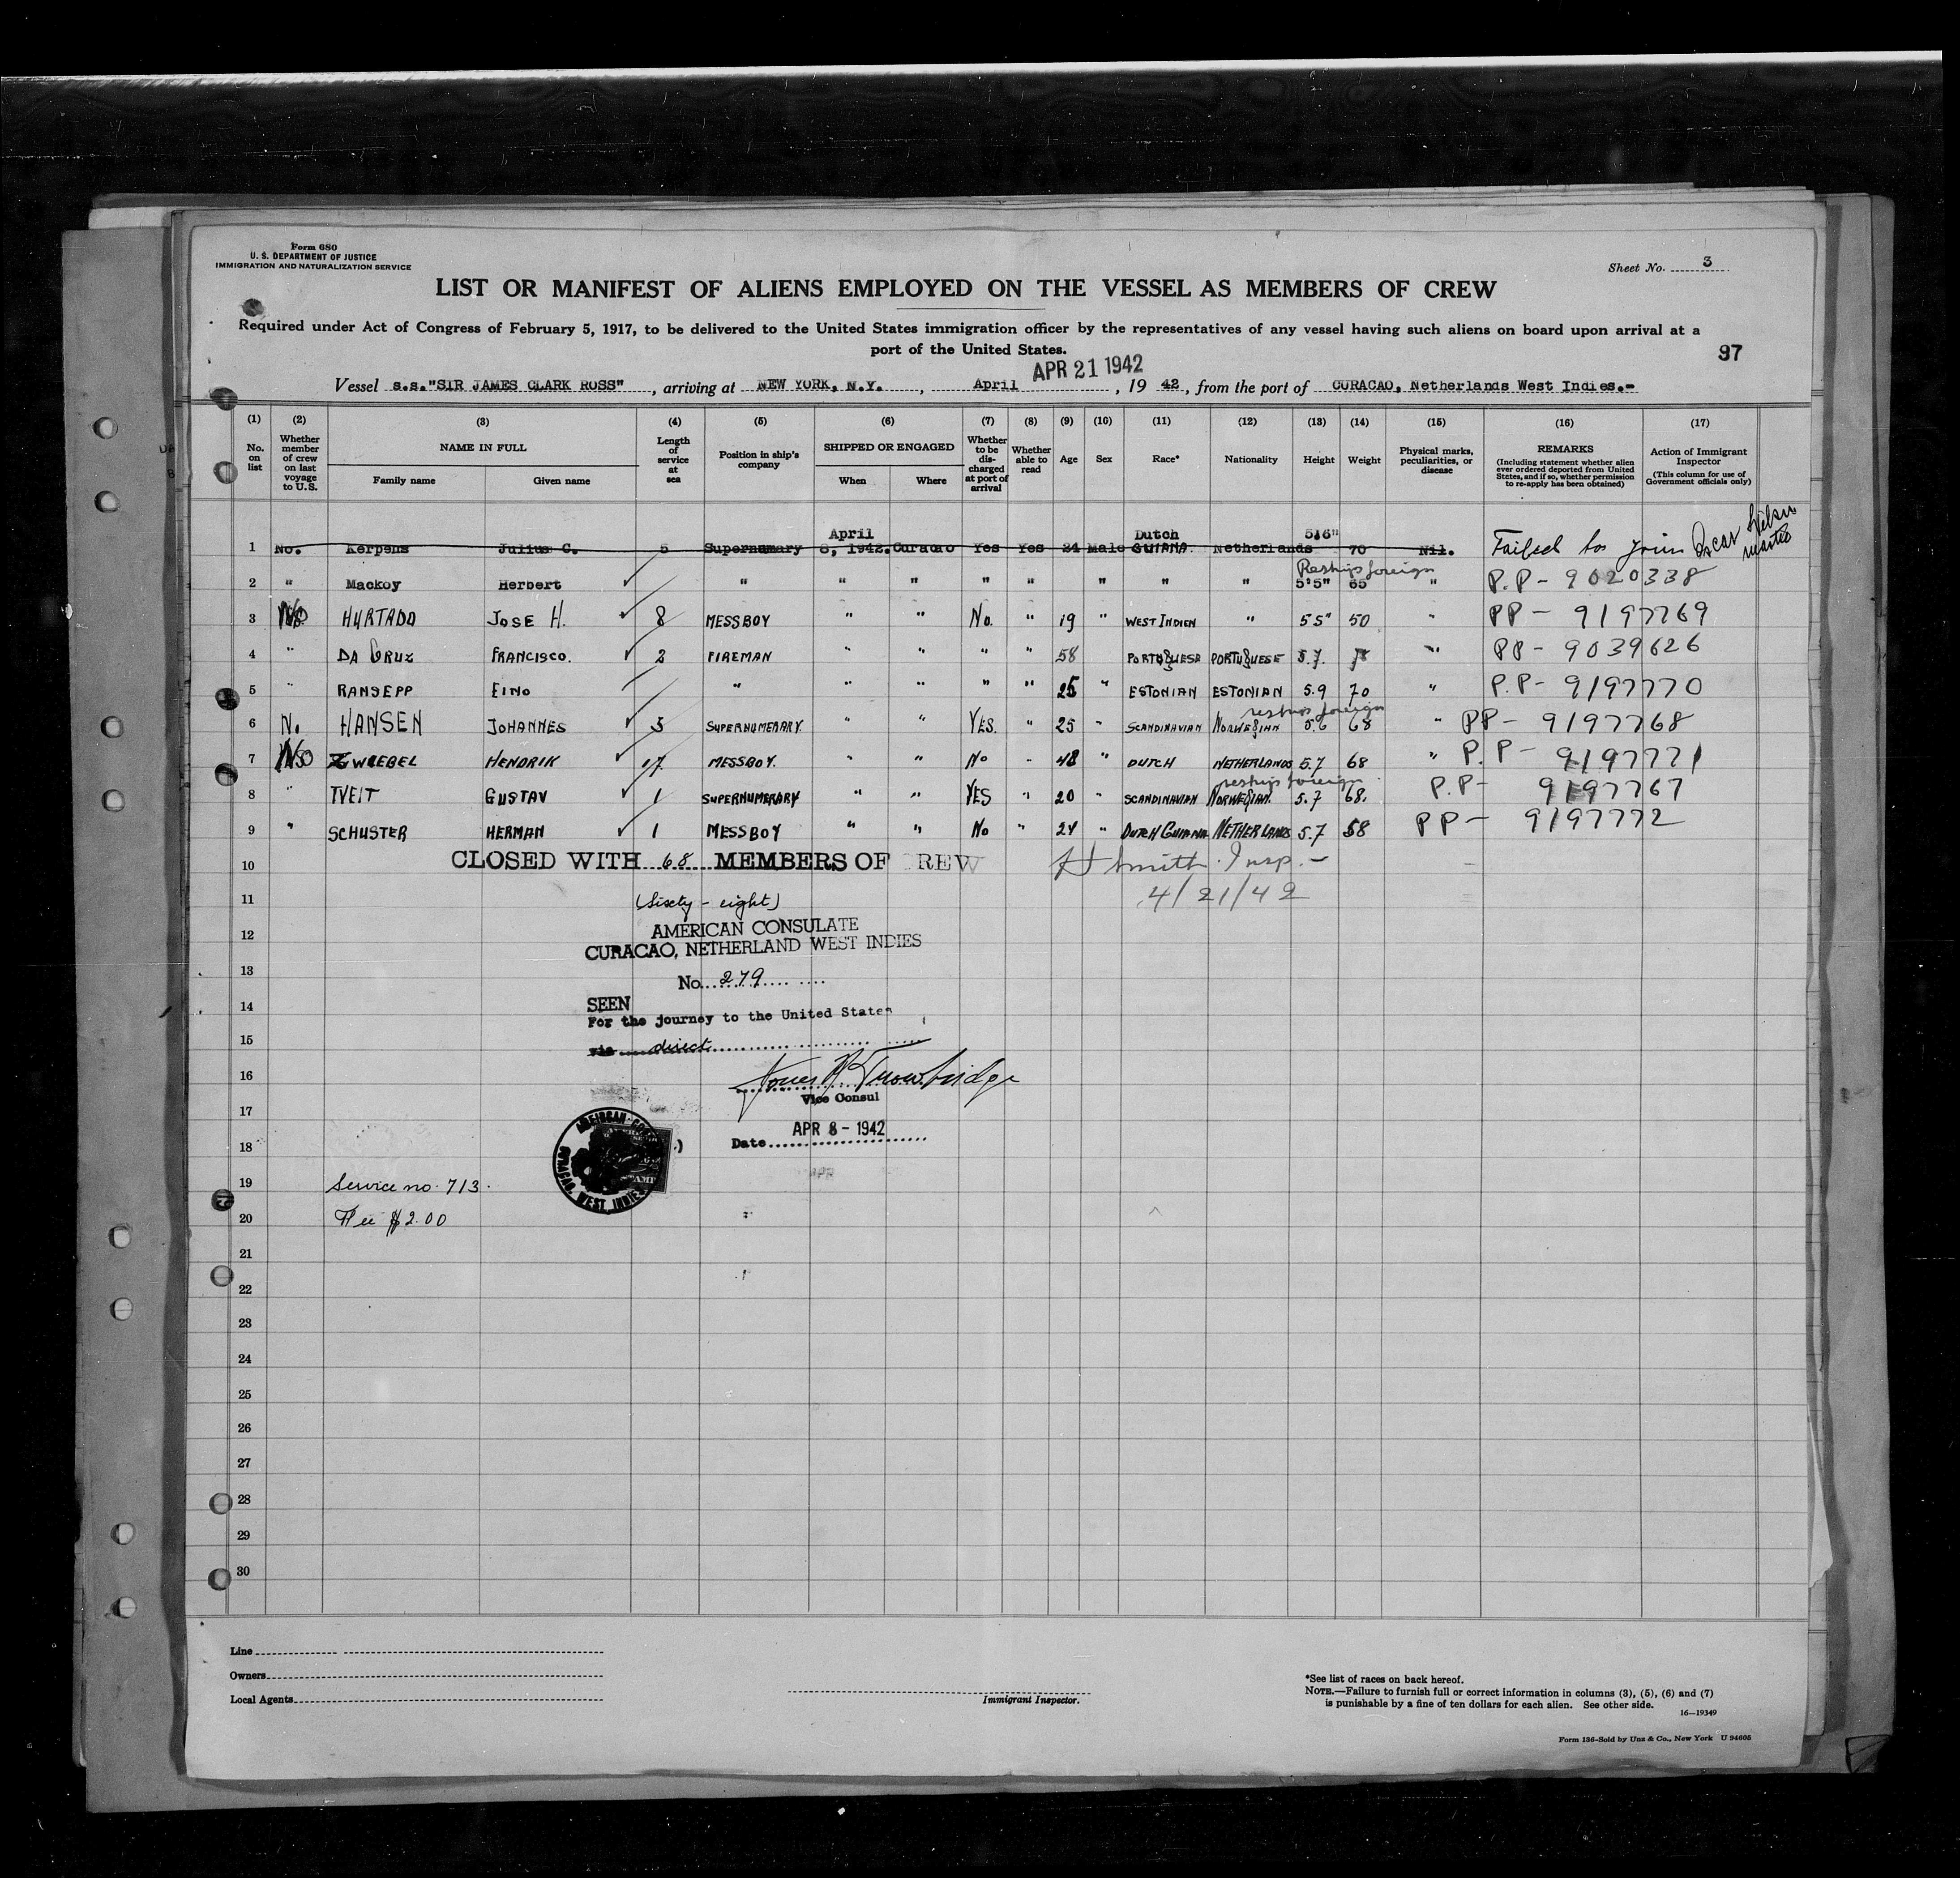 Form 680
U. S. DEPARTMENT OF JUSTICE
IMMIGRATION AND NATURALIZATION SERVICE
Sheet No. 3
LIST OR MANIFEST OF ALIENS EMPLOYED ON THE VESSEL AS MEMBERS OF CREW
Required under Act of Congress of February 5, 1917, to be delivered to the United States immigration officer by the representatives of any vessel having such aliens on board upon arrival at a
port of the United States.
97
APR 21 1942
Vessel s.s."SIR JAMES CLARK ROSS", arriving at NEW YORK, N.Y., April, 1942, from the port of CURACAO, Netherlands West Indies.-
(1) (2) (3) (4) (5) (6) (7) (8) (9) (10) (11) (12) (13) (14) (15) (16) (17)
No. on list
Whether member of crew on last voyage to U.S.
NAME IN FULL
Family name Given name
Length of service at sea
Position in ship's company
SHIPPED OR ENGAGED
When Where
Whether to be discharged at port of arrival
Whether able to read
Age
Sex
Race*
Nationality
Height
Weight
Physical marks, peculiarities, or disease
REMARKS
(Including statement whether alien ever ordered deported from United States, and if so, whether permission to re-apply has been obtained)
Action of Immigrant Inspector
(This column for use of Government officials only)
April Dutch 5'6"
1 No. Kerpens Julius C. 5 Supernumary 8, 1942. Curacao Yes Yes 24 Male GUIANA. Netherlands 70 Nil. Failed to join Oscar Nilsen master
Reships foreign
2 " Mackoy Herbert " " " " " " " " 5'5" 65 " P.P - 9020338
3 No HURTADO JOSE H. 8 MESSBOY " " No. " 19 " WEST INDIEN " 5 5" 50 " PP - 9197769
4 " DA CRUZ FRANCISCO. 2 FIREMAN " " " " 58 PORTUGUESE PORTUGUESE 5.7. " PP - 9039626
5 " RANSEPP EINO " " " " " 25 " ESTONIAN ESTONIAN 5.9 70 " P.P - 9197770
reships foreign
6 No. HANSEN JOHANNES 3 SUPERNUMERARY. " " YES. " 25 " SCANDINAVIAN NORWEGIAN 5.6 68 " PP - 9197768
7 No ZWIEBEL HENDRIK 17 MESSBOY. " " No " 48 " DUTCH NETHERLANDS 5.7 68 " P.P - 9197771
reships foreign
8 " TVEIT GUSTAV 1 SUPERNUMERARY " " YES " 20 " SCANDINAVIAN NORWEGIAN. 5.7 68. P.P - 9197767
9 " SCHUSTER HERMAN 1 MESSBOY " " No " 24 " DUTCH GUIANA NETHERLANDS 5.7 58 PP - 9197772
10 CLOSED WITH 68 MEMBERS OF CREW Smith Insp. -
11 (Sixty - eight) 4/21/42
12 AMERICAN CONSULATE
CURACAO, NETHERLAND WEST INDIES
13 No. 279
14 SEEN
For the journey to the United States
15 via direct
16 Trowbridge
Vice Consul
17
APR 8 - 1942
18 Date
AMERICAN CONS
CURACAO, WEST INDIES
19 Service no. 713.
20 Fee $2.00
21
22
23
24
25
26
27
28
29
30
Line
Owners
Local Agents
Immigrant Inspector.
*See list of races on back hereof.
NOTE.—Failure to furnish full or correct information in columns (3), (5), (6) and (7)
is punishable by a fine of ten dollars for each alien. See other side.
16—19349
Form 136-Sold by Unz & Co., New York U 94605